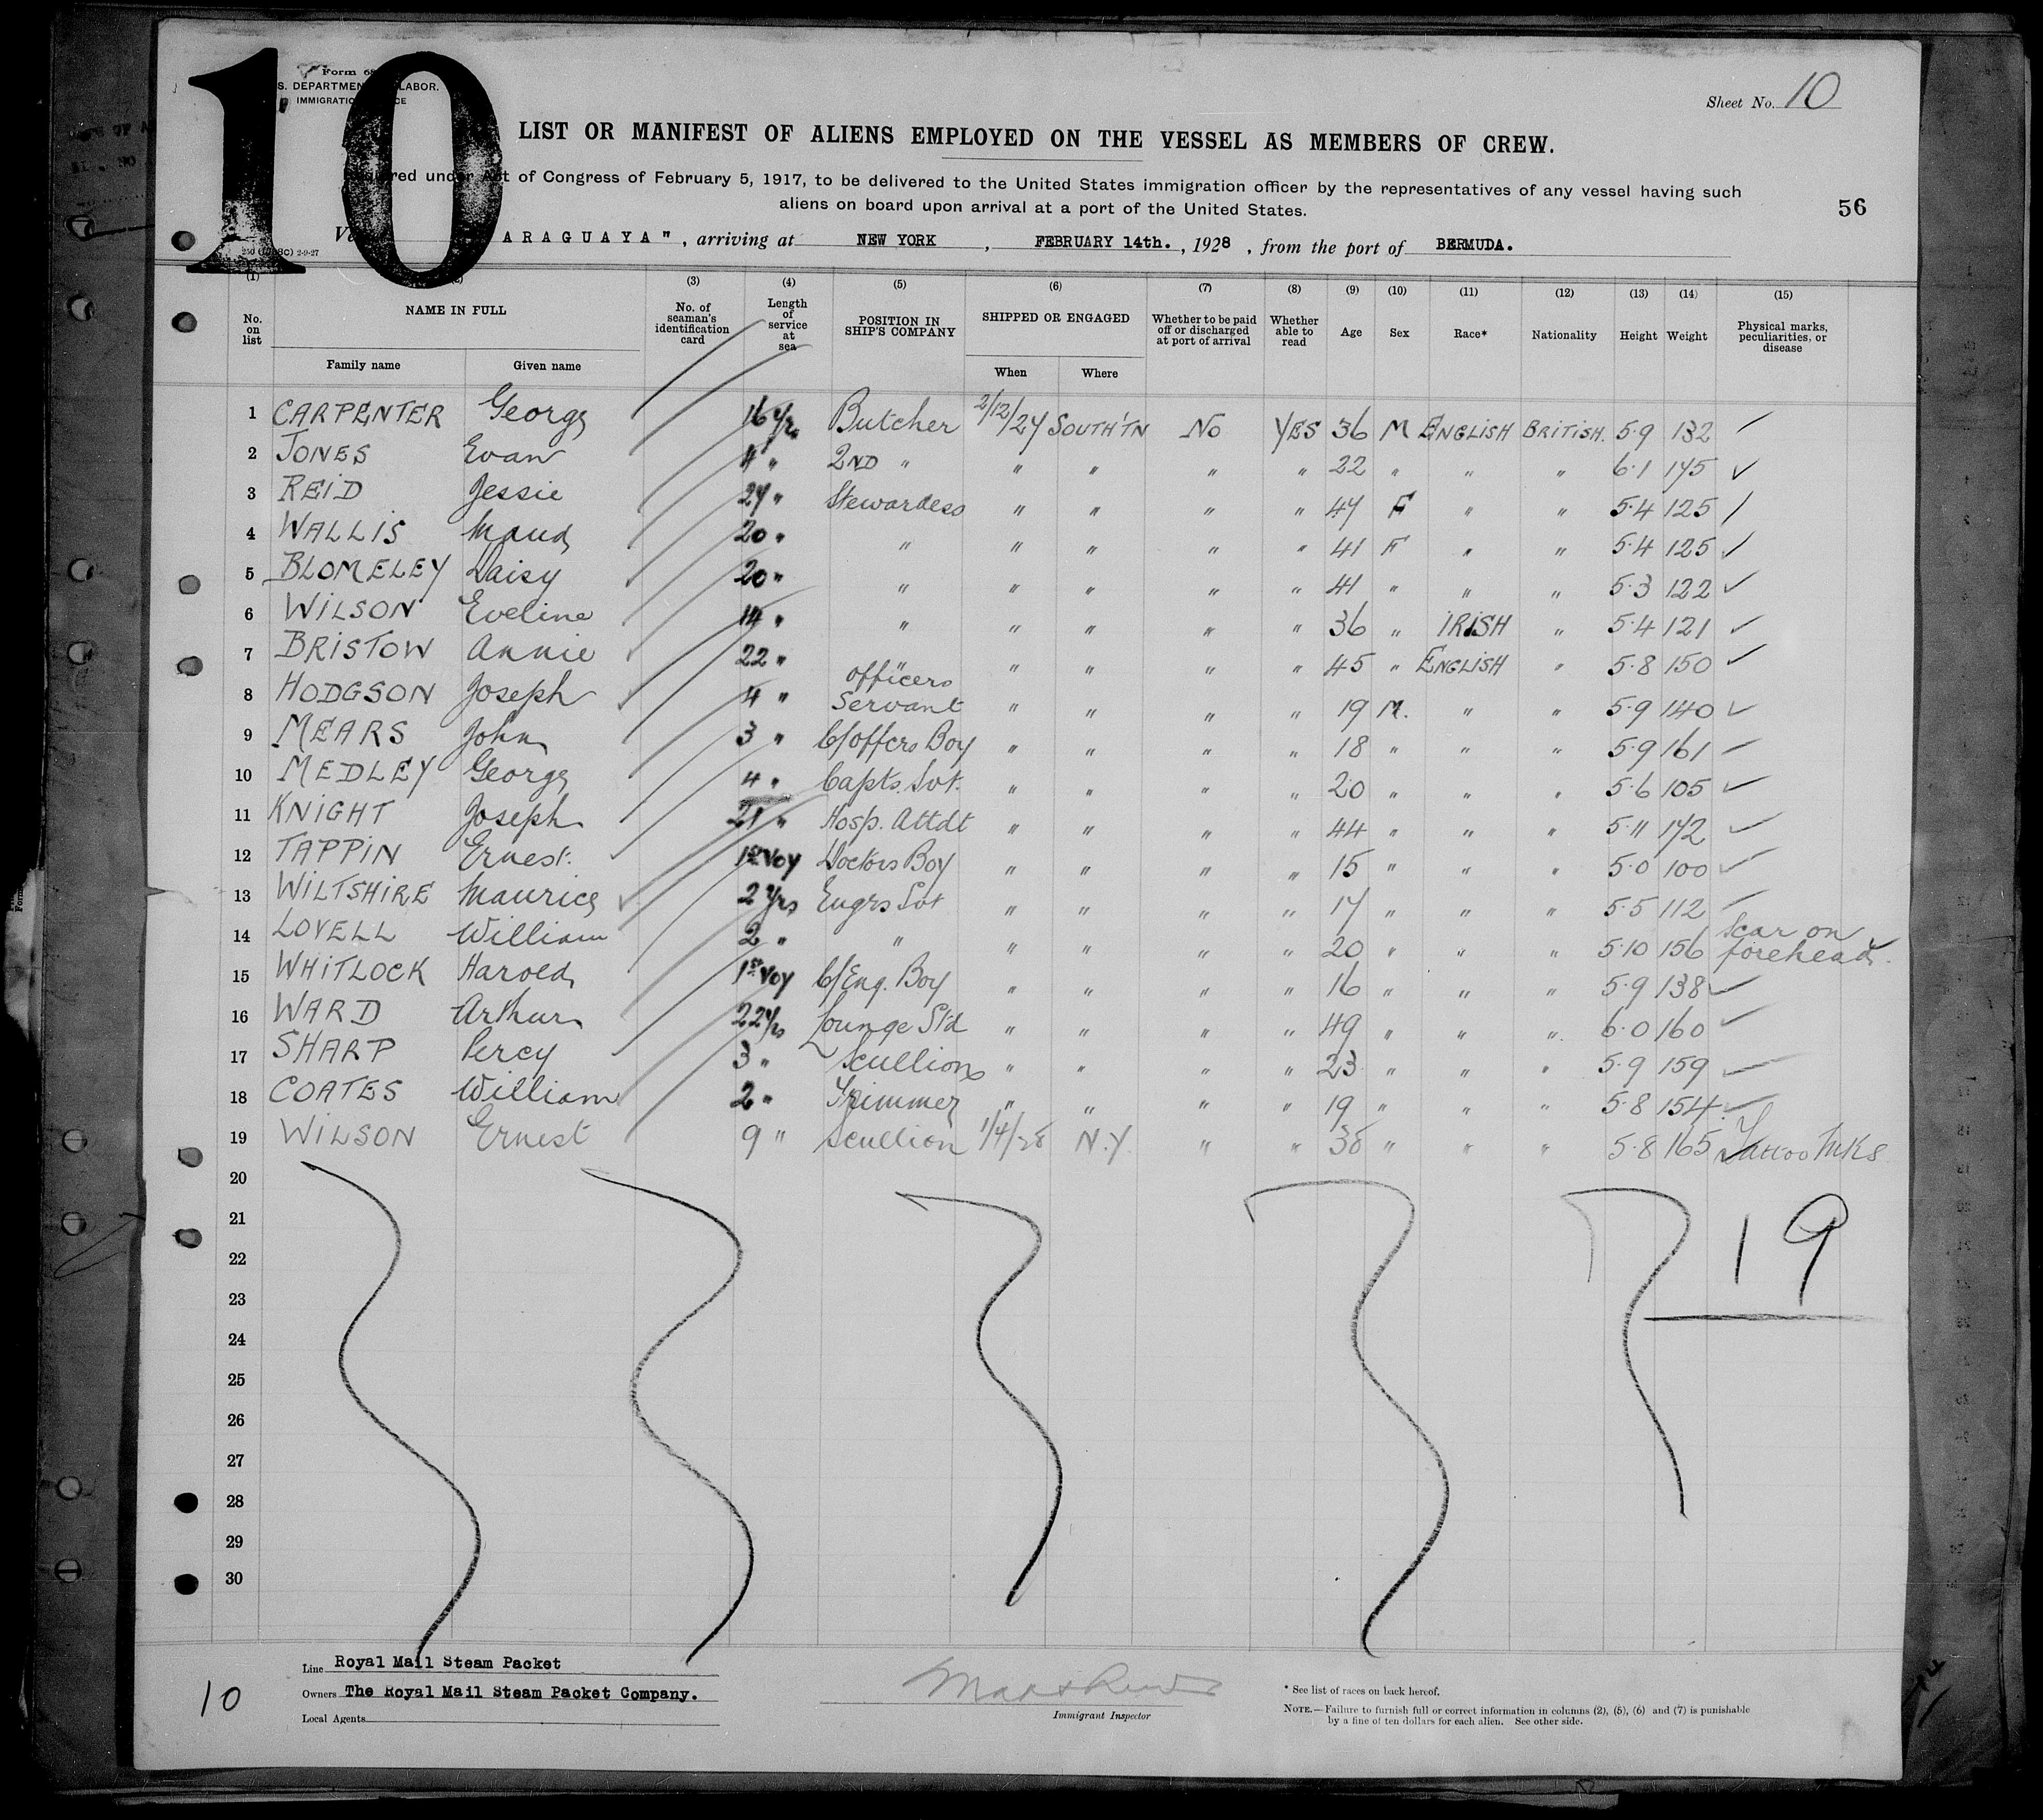 10
Form 68
S. DEPARTMENT LABOR.
IMMIGRATION SERVICE
Sheet No. 10
LIST OR MANIFEST OF ALIENS EMPLOYED ON THE VESSEL AS MEMBERS OF CREW.
Required under Act of Congress of February 5, 1917, to be delivered to the United States immigration officer by the representatives of any vessel having such
aliens on board upon arrival at a port of the United States.
56
ARAGUAYA", arriving at NEW YORK, FEBRUARY 14th., 1928, from the port of BERMUDA.
2-9-27
(1) (2) (3) (4) (5) (6) (7) (8) (9) (10) (11) (12) (13) (14) (15)
No. on list NAME IN FULL Family name Given name No. of seaman's identification card Length of service at sea POSITION IN SHIP'S COMPANY SHIPPED OR ENGAGED When Where Whether to be paid off or discharged at port of arrival Whether able to read Age Sex Race* Nationality Height Weight Physical marks, peculiarities, or disease
1 CARPENTER George 16 Yrs Butcher 2/12/27 SOUTH'TN No YES 36 M ENGLISH BRITISH. 5.9 132 ✓
2 JONES Evan 4 " 2ND " " " " " 22 " " " 6.1 175 ✓
3 REID Jessie 27 " Stewardess " " " " 47 F " " 5.4 125 /
4 WALLIS Maud 20 " " " " " " 41 F " " 5.4 125 ✓
5 BLOMELEY Daisy 20 " " " " " " 41 " " " 5.3 122 ✓
6 WILSON Eveline 14 " " " " " " 36 " IRISH " 5.4 121 ✓
7 BRISTOW Annie 22 " " " " " " 45 " ENGLISH " 5.8 150 ✓
8 HODGSON Joseph 4 " Officers Servant " " " " 19 M. " " 5.9 140 ✓
9 MEARS John 3 " C/Offcrs Boy " " " " 18 " " " 5.9 161 ✓
10 MEDLEY George 4 " Capts. Svt. " " " " 20 " " " 5.6 105 ✓
11 KNIGHT Joseph 21 " Hosp. Attdt " " " " 44 " " " 5.11 172 ✓
12 TAPPIN Ernest. 1st Voy Doctors Boy " " " " 15 " " " 5.0 100 ✓
13 WILTSHIRE Maurice 2 Yrs Engrs Svt " " " " 17 " " " 5.5 112 ✓
14 LOVELL William 2 " " " " " " 20 " " " 5.10 156 Scar on forehead.
15 WHITLOCK Harold 1st Voy C/Eng. Boy " " " " 16 " " " 5.9 138 ✓
16 WARD Arthur 22 Yrs Lounge Std " " " " 49 " " " 6.0 160 ✓
17 SHARP Percy 3 " Scullion " " " " 23 " " " 5.9 159 ✓
18 COATES William 2 " Trimmer " " " " 19 " " " 5.8 154 ✓
19 WILSON Ernest 9 " Scullion 1/4/28 N.Y. " " 38 " " " 5.8 165 Tattoo Mks
20
21
22
23
24
25
26
27
28
29
30
19
Line Royal Mail Steam Packet
Owners The Royal Mail Steam Packet Company.
Local Agents
10
Immigrant Inspector
* See list of races on back hereof.
NOTE.—Failure to furnish full or correct information in columns (2), (5), (6) and (7) is punishable
by a fine of ten dollars for each alien. See other side.